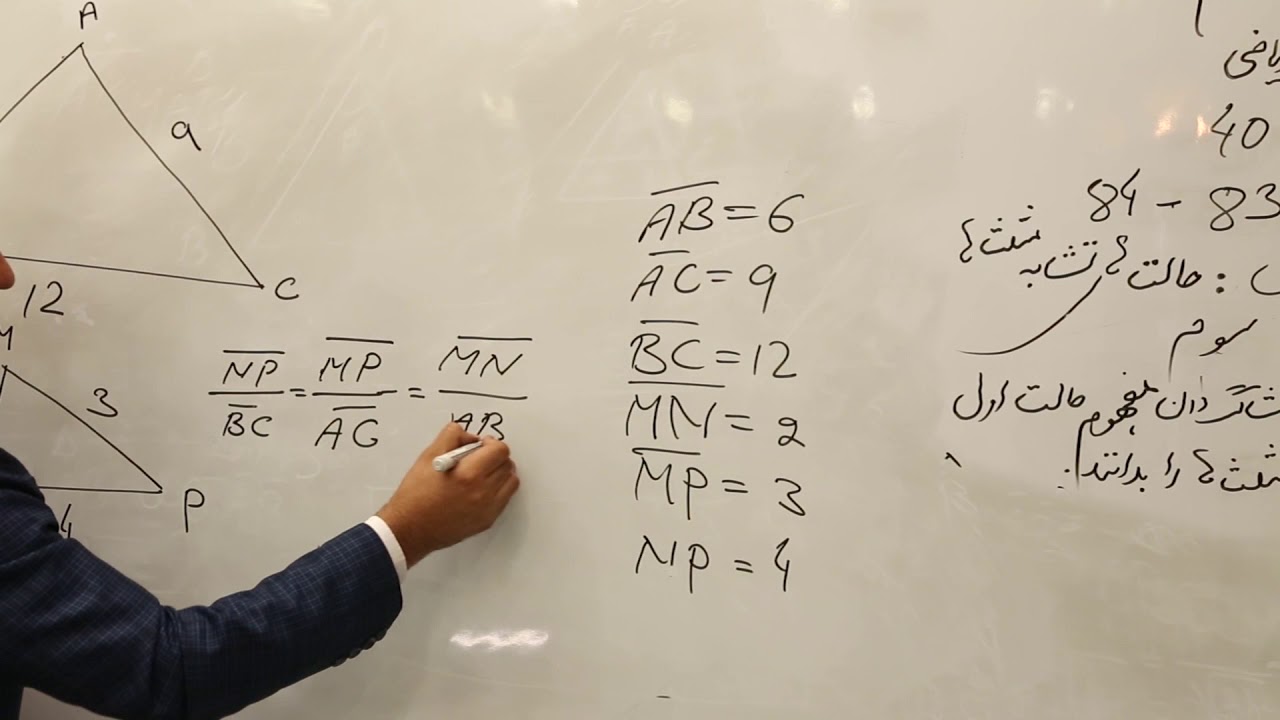 A
9
C
12
M
3
P
4
NP/BC = MP/AC = MN/AB
AB = 6
AC = 9
BC = 12
MN = 2
MP = 3
NP = 4
ریاضی
40
84 - 83
: حالت های تشابه مثلث ها
سوم
شاگردان مفهوم حالت اول
مثلث ها را بدانند.